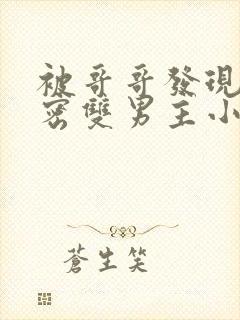 被哥哥發現
密雙男主小
蒼生笑